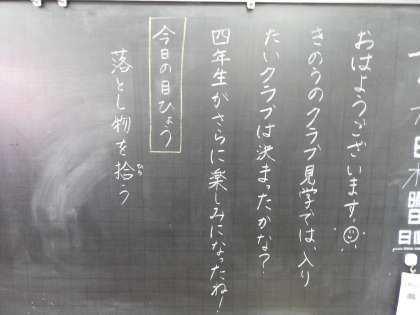 おはようございます。
きのうのクラブ見学では、入り
たいクラブは決まったかな?
四年生がさらに楽しみになったね!
今日の目ひょう
落とし物を拾う
ひろ
曜日